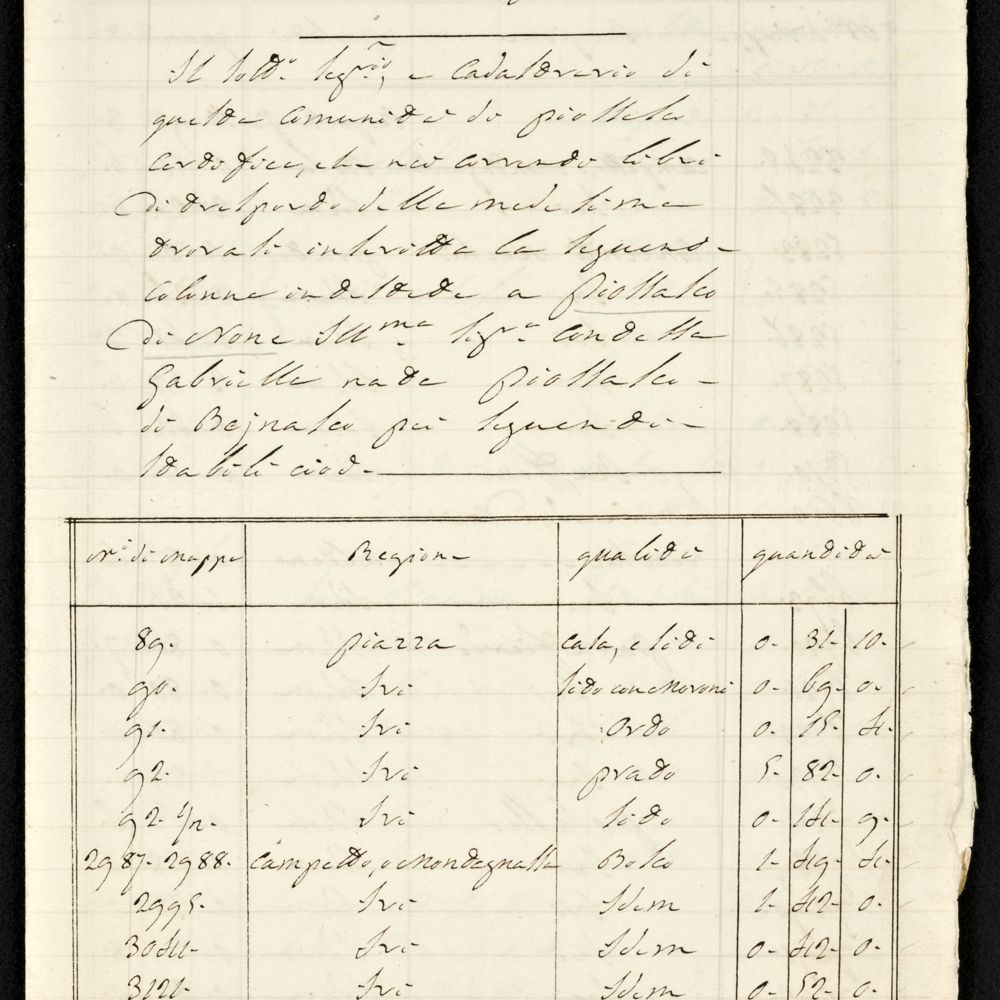 Il Sott.° Seg.rio, e Catastraro di
questa Comunità di Piossasco
certifica, che nei correnti libri
di trasporto della medesima
trovasi inscritta la seguente
colonna intestata a Piossasco
Di None Ill.ma Sig.ra Contessa
Gabriella nata Piossasco
di Beinasco pei seguenti
stabili cioè
N.° di Mappa Regione qualità quantità
89. piazza casa, e siti 0. 31. 10.
90. Ivi sito con Moroni 0. 69. 0.
91. Ivi Orto 0. 15. 4.
92. Ivi prato 5. 82. 0.
92. 1/2. Ivi sito 0. 14. 9.
2987. 2988. Campetto, o Montagnassa Bosco 1. 49. 4.
2995. Ivi Idem 1. 42. 0.
3044. Ivi Idem 0. 42. 0.
3121. Ivi Idem 0. 52. 0.